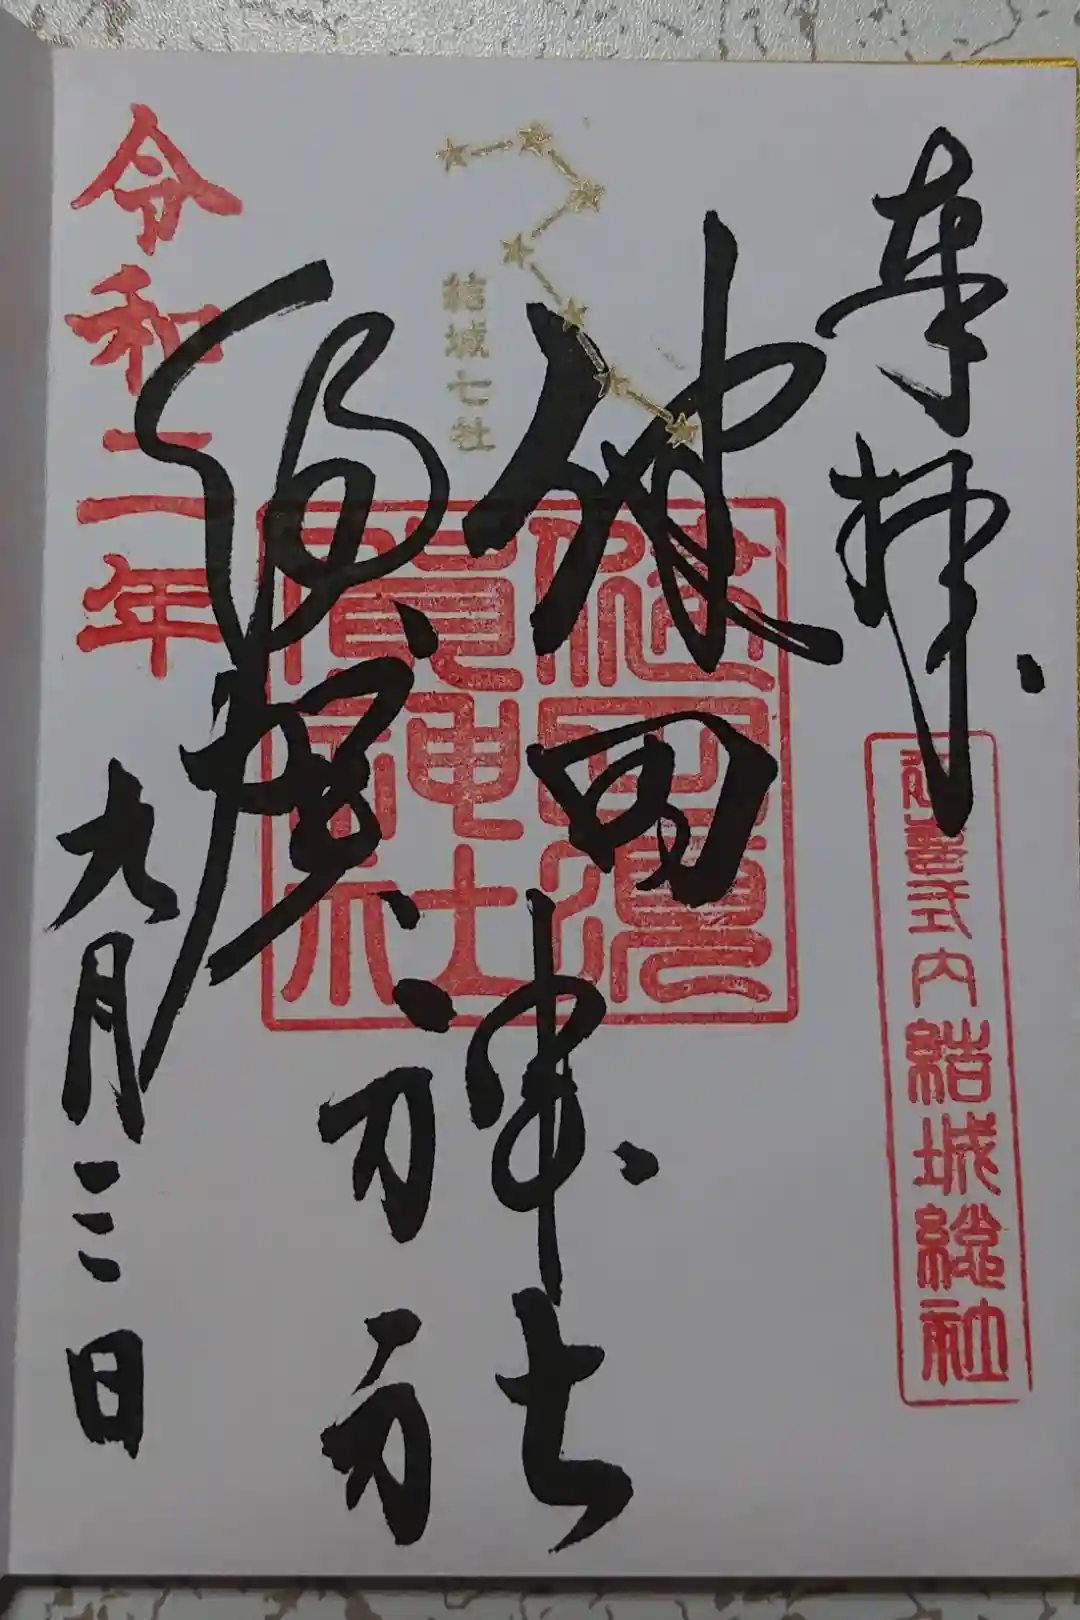 奉拝
延喜式内結城総社
健田神社
須賀
健田須
賀神社
結城七社
令和二年
九月三日